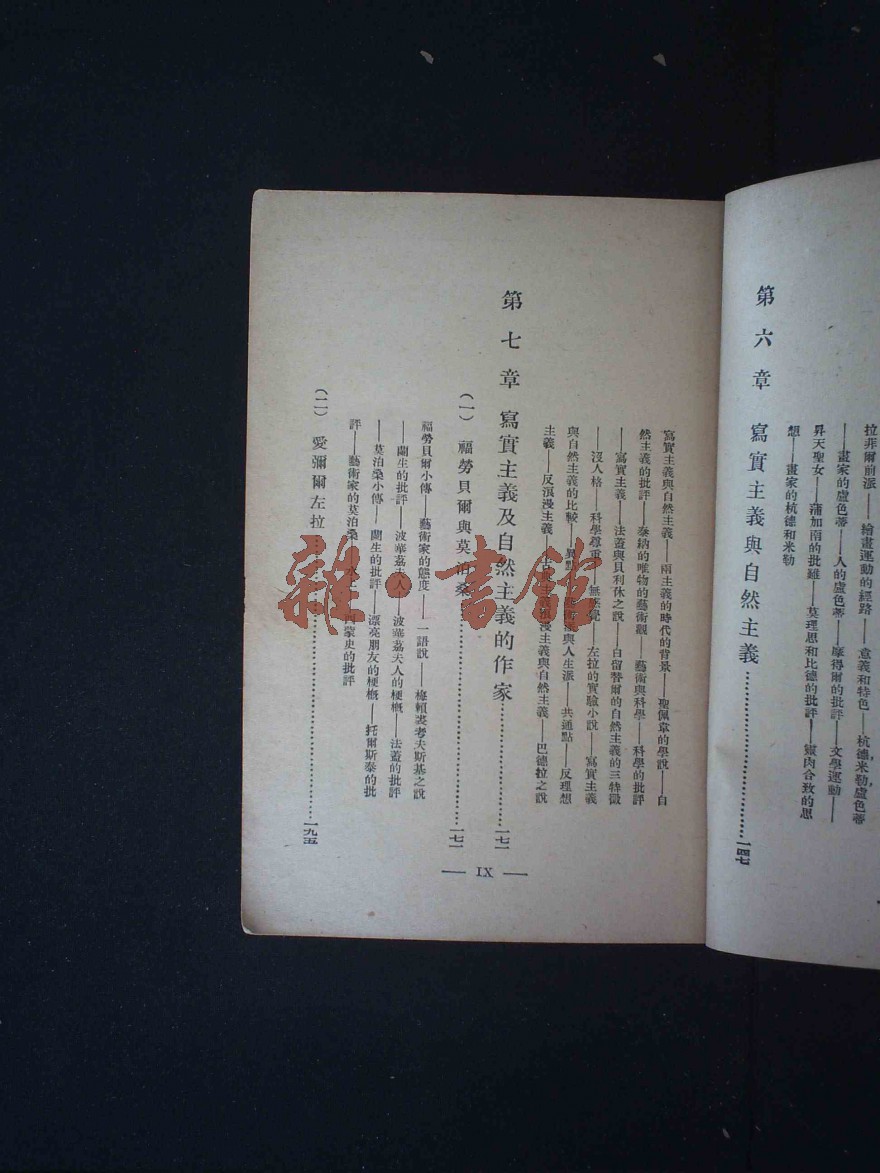 拉非爾前派——繪畫運動的經路——意義和特色——杭德，米勒，盧色蒂
——畫家的盧色蒂——人的盧色蒂——摩得爾的批評——文學運動——
昇天聖女——蒲加南的批難——莫理思和比德的批評——靈肉合致的思
想——畫家的杭德和米勒
第六章 寫實主義與自然主義……一四七
寫實主義與自然主義——兩主義的時代的背景——聖佩韋的學說——自
然主義的批評——泰納的唯物的藝術觀——藝術與科學——科學的批評
——寫實主義——法蓋與貝利休之說——白留帶爾的自然主義的三特徵
——沒人格——科學尊重——無感覺——左拉的實驗小說——寫實主義
與自然主義的比較——異點——藝術派與人生派——共通點——反理想
主義——反浪漫主義——浪漫主義與自然主義——巴德拉之說
第七章 寫實主義及自然主義的作家……一七一
（一） 福勞貝爾與莫泊桑……一七一
福勞貝爾小傳——藝術家的態度——一語說——梅賴裘考夫斯基之說
——蘭生的批評——波華荔夫人——波華荔夫人的梗槪——法蓋的批評
——莫泊桑小傳——蘭生的批評——漂亮朋友的梗槪——托爾斯泰的批
評——藝術家的莫泊桑——西蒙史的批評
（二） 愛彌爾左拉……一九五
— IX —
雜·書館